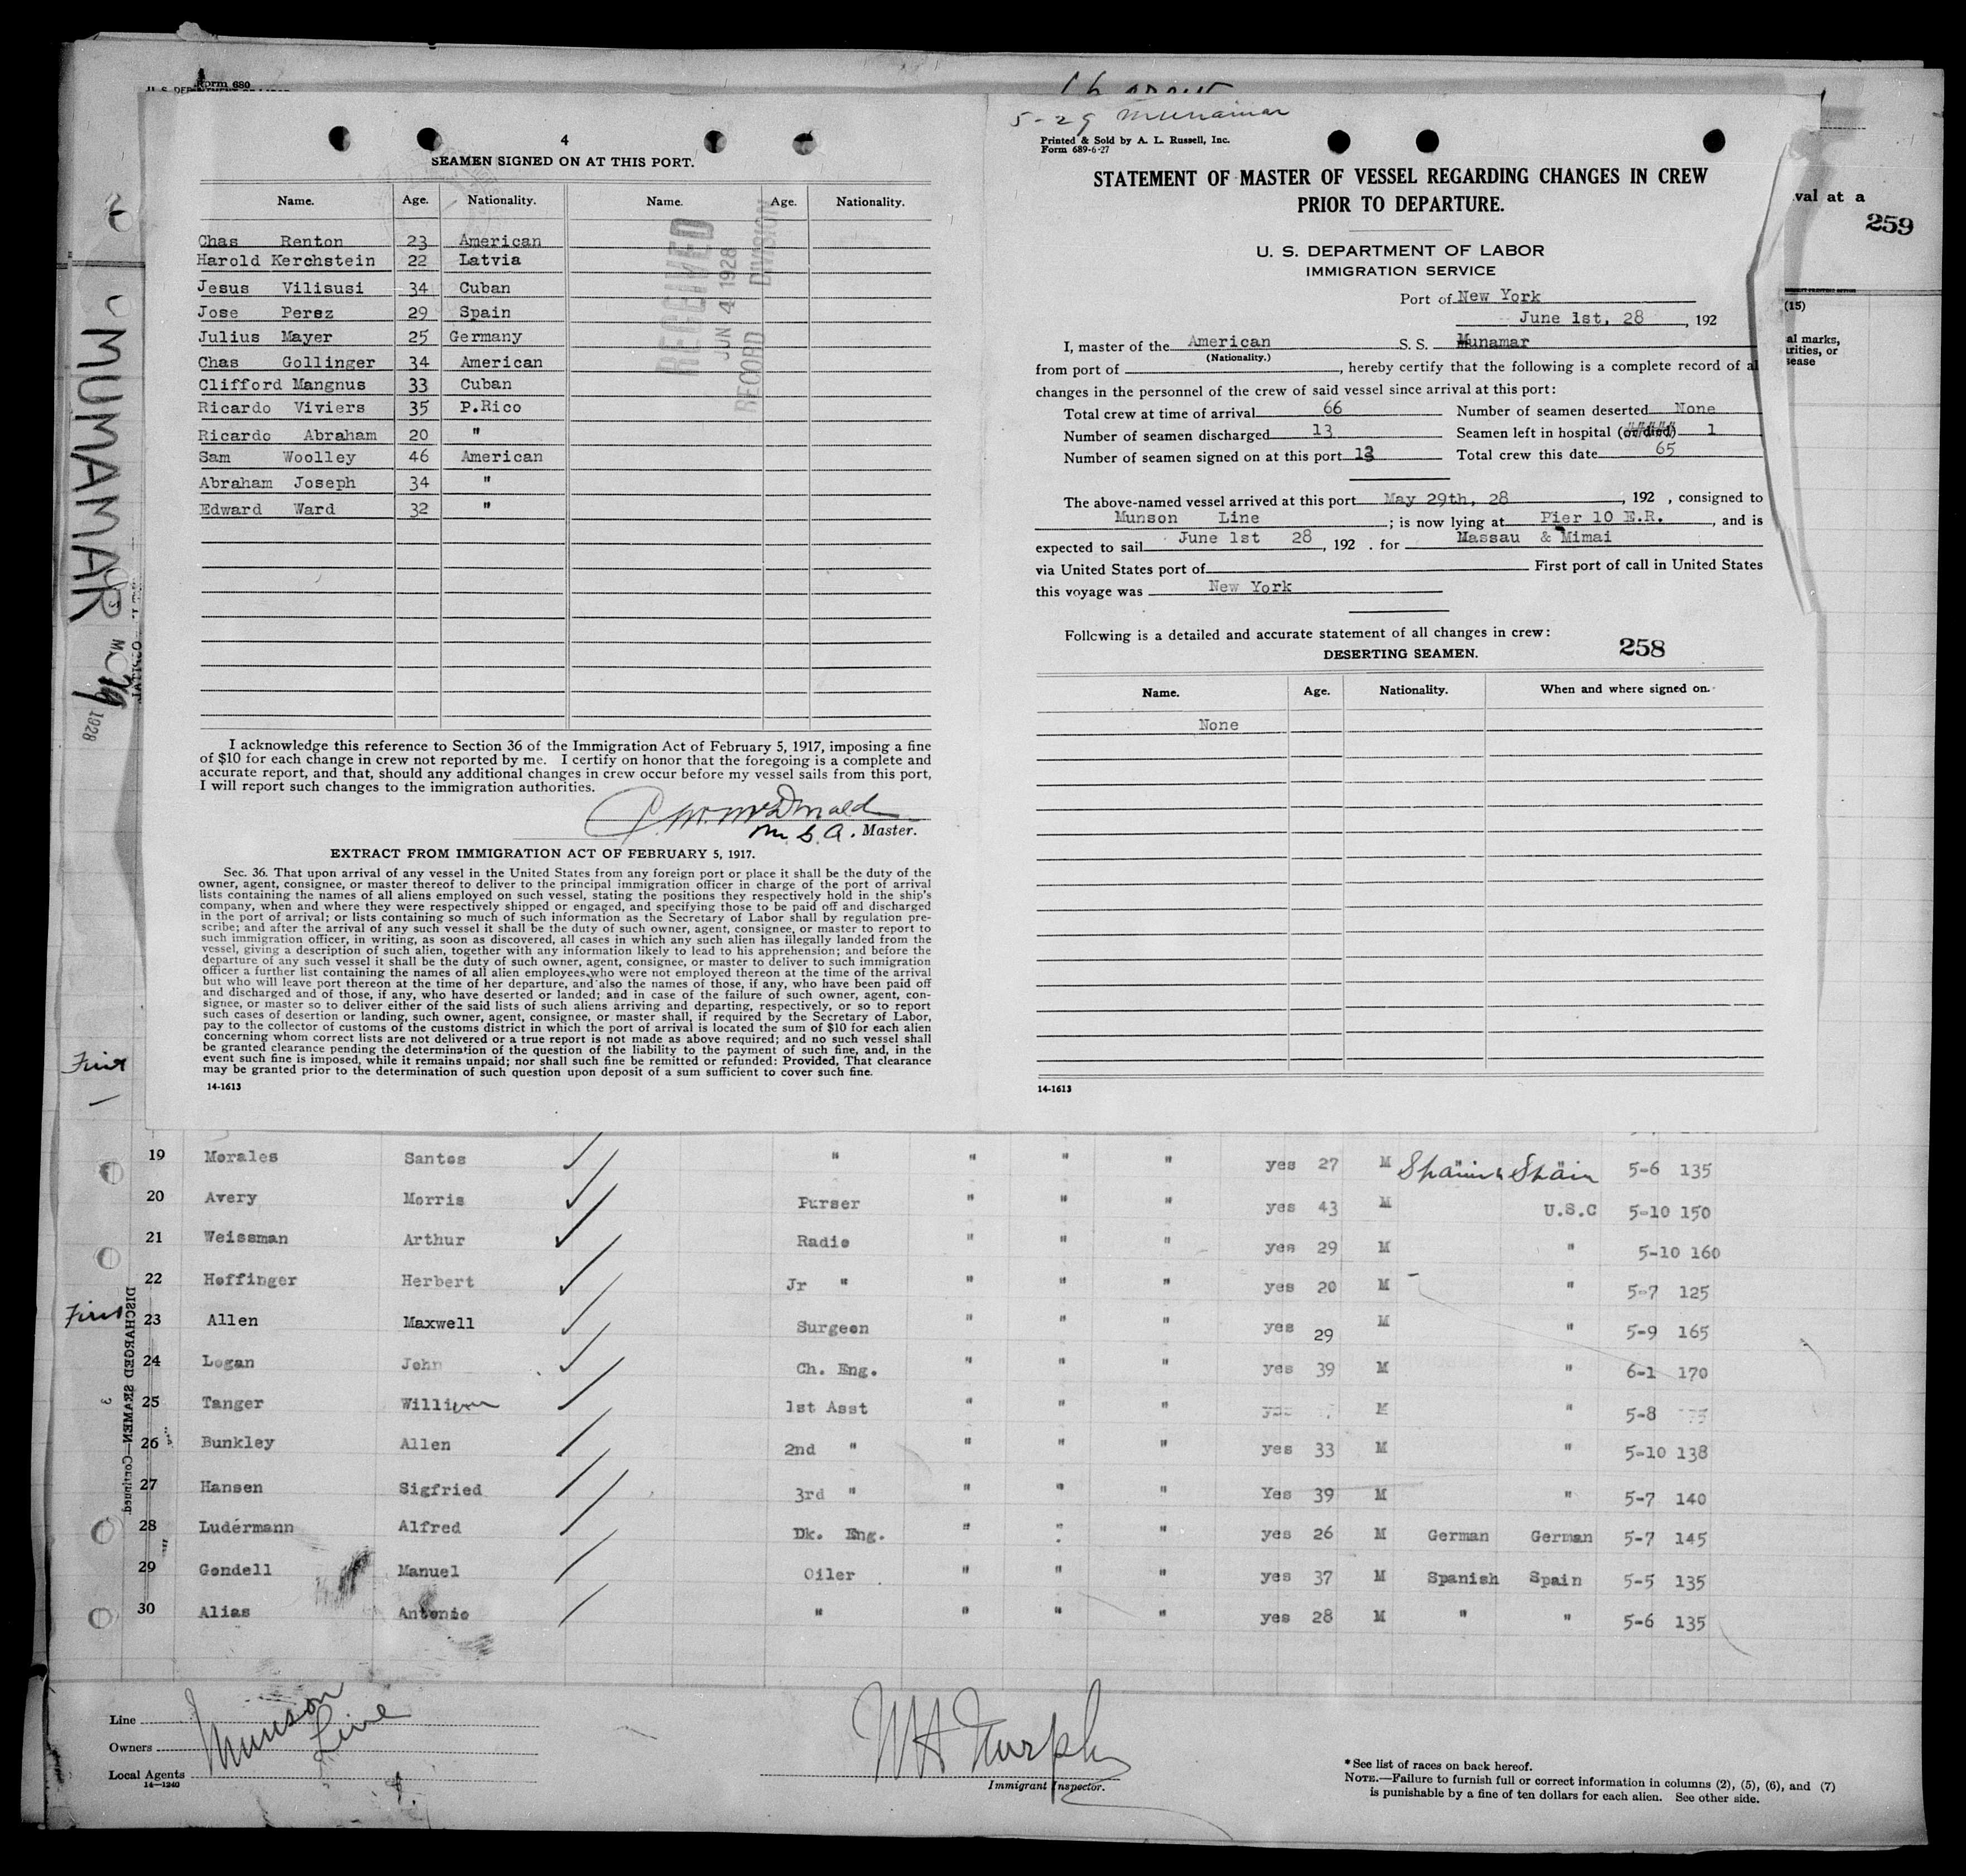 Form 680
5-29 Munamar
4
SEAMEN SIGNED ON AT THIS PORT.
Name. Age. Nationality. Name. Age. Nationality.
Chas Renton 23 American
Harold Kerchstein 22 Latvia
Jesus Vilisusi 34 Cuban
Jose Perez 29 Spain
Julius Mayer 25 Germany
Chas Gollinger 34 American
Clifford Mangnus 33 Cuban
Ricardo Viviers 35 P.Rico
Ricardo Abraham 20 "
Sam Woolley 46 American
Abraham Joseph 34 "
Edward Ward 32 "
RECEIVED
JUN 4 1928
RECORD DIVISION
I acknowledge this reference to Section 36 of the Immigration Act of February 5, 1917, imposing a fine
of $10 for each change in crew not reported by me. I certify on honor that the foregoing is a complete and
accurate report, and that, should any additional changes in crew occur before my vessel sails from this port,
I will report such changes to the immigration authorities.
Master.
EXTRACT FROM IMMIGRATION ACT OF FEBRUARY 5, 1917.
Sec. 36. That upon arrival of any vessel in the United States from any foreign port or place it shall be the duty of the
owner, agent, consignee, or master thereof to deliver to the principal immigration officer in charge of the port of arrival
lists containing the names of all aliens employed on such vessel, stating the positions they respectively hold in the ship's
company, when and where they were respectively shipped or engaged, and specifying those to be paid off and discharged
in the port of arrival; or lists containing so much of such information as the Secretary of Labor shall by regulation pre-
scribe; and after the arrival of any such vessel it shall be the duty of such owner, agent, consignee, or master to report to
such immigration officer, in writing, as soon as discovered, all cases in which any such alien has illegally landed from the
vessel, giving a description of such alien, together with any information likely to lead to his apprehension; and before the
departure of any such vessel it shall be the duty of such owner, agent, consignee, or master to deliver to such immigration
officer a further list containing the names of all alien employees who were not employed thereon at the time of the arrival
but who will leave port thereon at the time of her departure, and also the names of those, if any, who have been paid off
and discharged and of those, if any, who have deserted or landed; and in case of the failure of such owner, agent, con-
signee, or master so to deliver either of the said lists of such aliens arriving and departing, respectively, or so to report
such cases of desertion or landing, such owner, agent, consignee, or master shall, if required by the Secretary of Labor,
pay to the collector of customs of the customs district in which the port of arrival is located the sum of $10 for each alien
concerning whom correct lists are not delivered or a true report is not made as above required; and no such vessel shall
be granted clearance pending the determination of the question of the liability to the payment of such fine, and, in the
event such fine is imposed, while it remains unpaid; nor shall such fine be remitted or refunded: Provided, That clearance
may be granted prior to the determination of such question upon deposit of a sum sufficient to cover such fine.
14-1613
Printed & Sold by A. L. Russell, Inc.
Form 689-6-27
STATEMENT OF MASTER OF VESSEL REGARDING CHANGES IN CREW
PRIOR TO DEPARTURE.
U. S. DEPARTMENT OF LABOR
IMMIGRATION SERVICE
Port of New York
June 1st, 28, 192
I, master of the American S. S. Munamar
(Nationality.)
from port of , hereby certify that the following is a complete record of al
changes in the personnel of the crew of said vessel since arrival at this port:
Total crew at time of arrival 66 Number of seamen deserted None
Number of seamen discharged 13 Seamen left in hospital (or died) 1
Number of seamen signed on at this port 12 Total crew this date 65
The above-named vessel arrived at this port May 29th, 28, 192 , consigned to
Munson Line; is now lying at Pier 10 E.R., and is
expected to sail June 1st 28, 192 . for Massau & Mimai
via United States port of First port of call in United States
this voyage was New York
Following is a detailed and accurate statement of all changes in crew:
DESERTING SEAMEN. 258
Name. Age. Nationality. When and where signed on.
None
14-1613
val at a
259
(15)
al marks,
rities, or
sease
MUMAMAR
1928
First
First
DISCHARGED SEAMEN—Continued.
3
19 Morales Santos " " " " yes 27 M Spanish Spain 5-6 135
20 Avery Morris Purser " " " yes 43 M U.S.C 5-10 150
21 Weissman Arthur Radio " " " yes 29 M " 5-10 160
22 Hoffinger Herbert Jr " " " " yes 20 M " 5-7 125
23 Allen Maxwell Surgeon " " " yes 29 M " 5-9 165
24 Logan John Ch. Eng. " " " yes 39 M " 6-1 170
25 Tanger William 1st Asst " " " yes M " 5-8
26 Bunkley Allen 2nd " " " " yes 33 M " 5-10 138
27 Hansen Sigfried 3rd " " " " Yes 39 M " 5-7 140
28 Ludérmann Alfred Dk. Eng. " " " yes 26 M German German 5-7 145
29 Gondell Manuel Oiler " " " yes 37 M Spanish Spain 5-5 135
30 Alias Antonio " " " " yes 28 M " " 5-6 135
Line
Owners
Local Agents
14—1240
Munson
Line
Immigrant Inspector.
* See list of races on back hereof.
NOTE.—Failure to furnish full or correct information in columns (2), (5), (6), and (7)
is punishable by a fine of ten dollars for each alien. See other side.